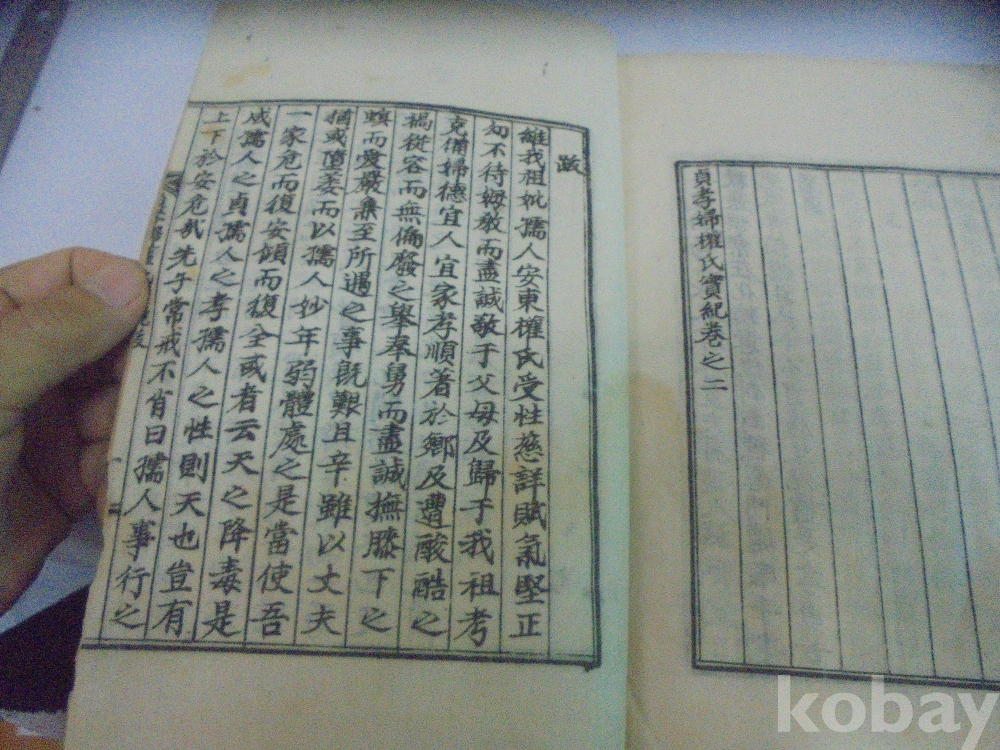 貞孝婦權氏實紀卷之二
跋
維我祖妣孺人安東權氏受性慈詳賦氣堅正
幼不待姆敎而盡誠敬于父母及歸于我祖考
克備婦德宜人宜家孝順着於鄕及遭酸酷之
禍從容而無偏廢之擧奉舅而盡誠撫膝下之
螟而愛嚴兼至所遇之事旣艱且辛雖以丈夫
猶或墮委而以孺人妙年弱體處之是當使吾
一家危而復安傾而復全或者云天之降毒是
成孺人之貞孺人之孝孺人之性則天也豈有
上下於安危哉先子常戒不肖曰孺人事行之
kobay